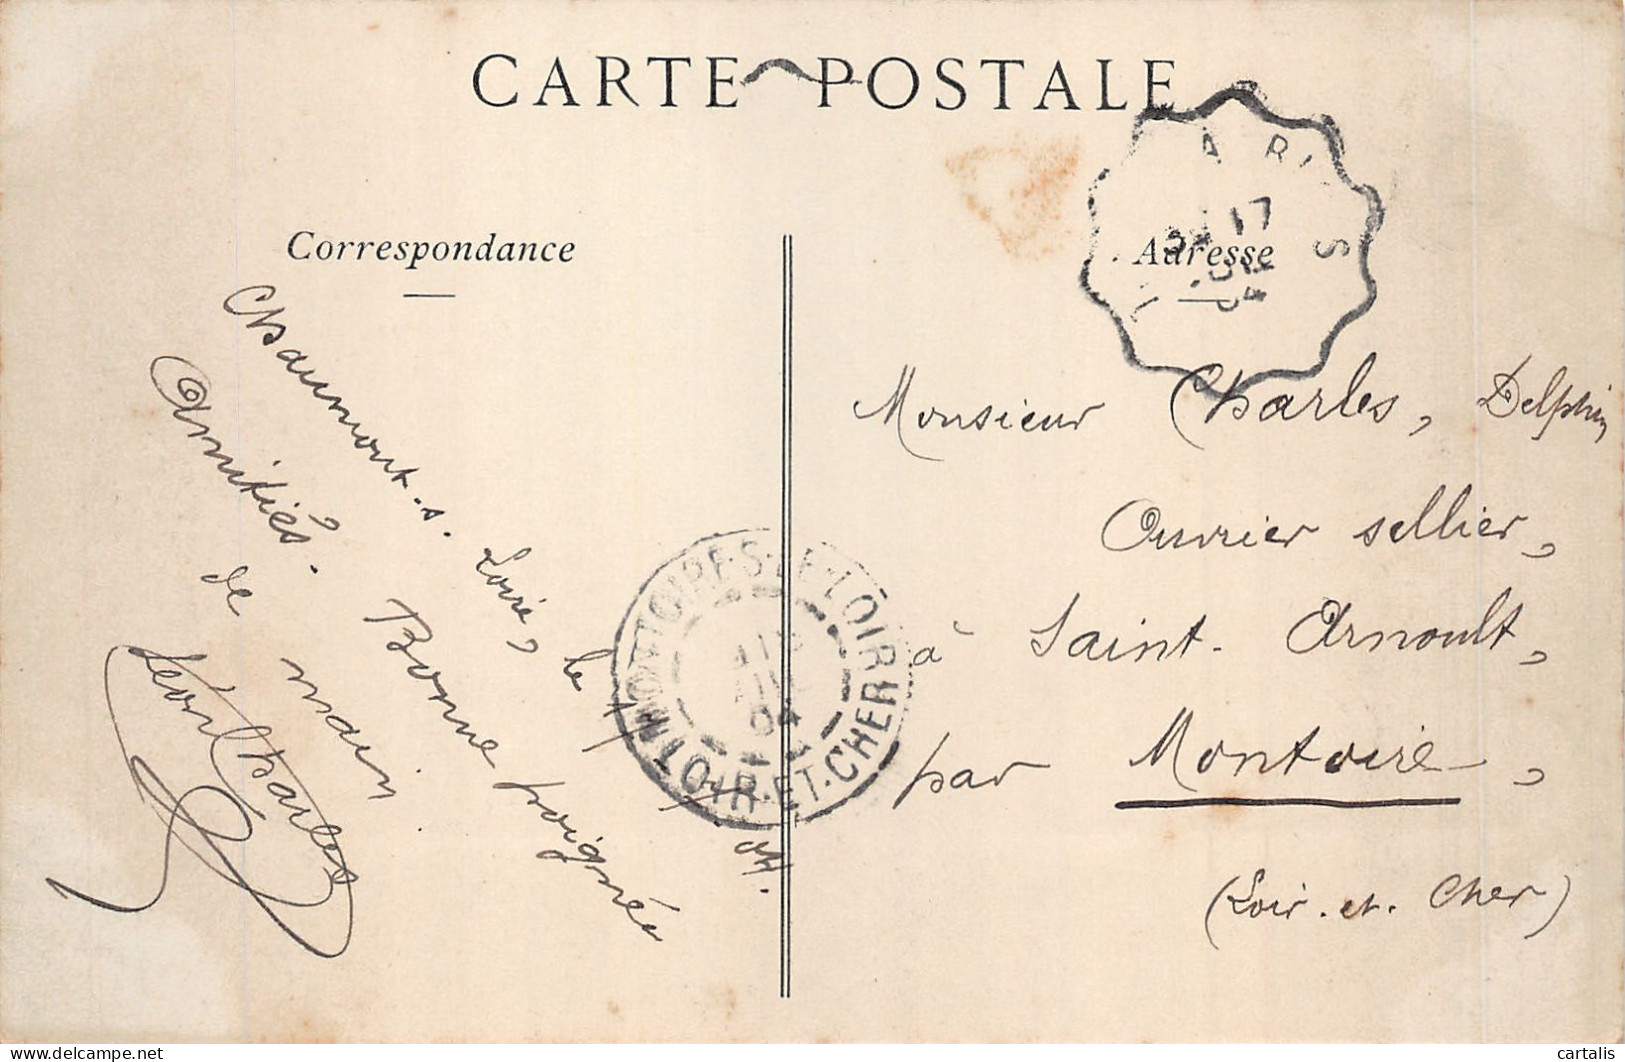 CARTE POSTALE
Correspondance
Chaumont-s-Loire, le
Amitiés. Bonne poignée
de main
Léon Charles
MONTOIRE-S-LE-LOIR
04
LOIR-ET-CHER
17
04
Adresse
Monsieur Charles, Delphin
Ouvrier sellier,
à Saint-Arnoult,
par Montoire,
(Loir-et-Cher)
cartalis